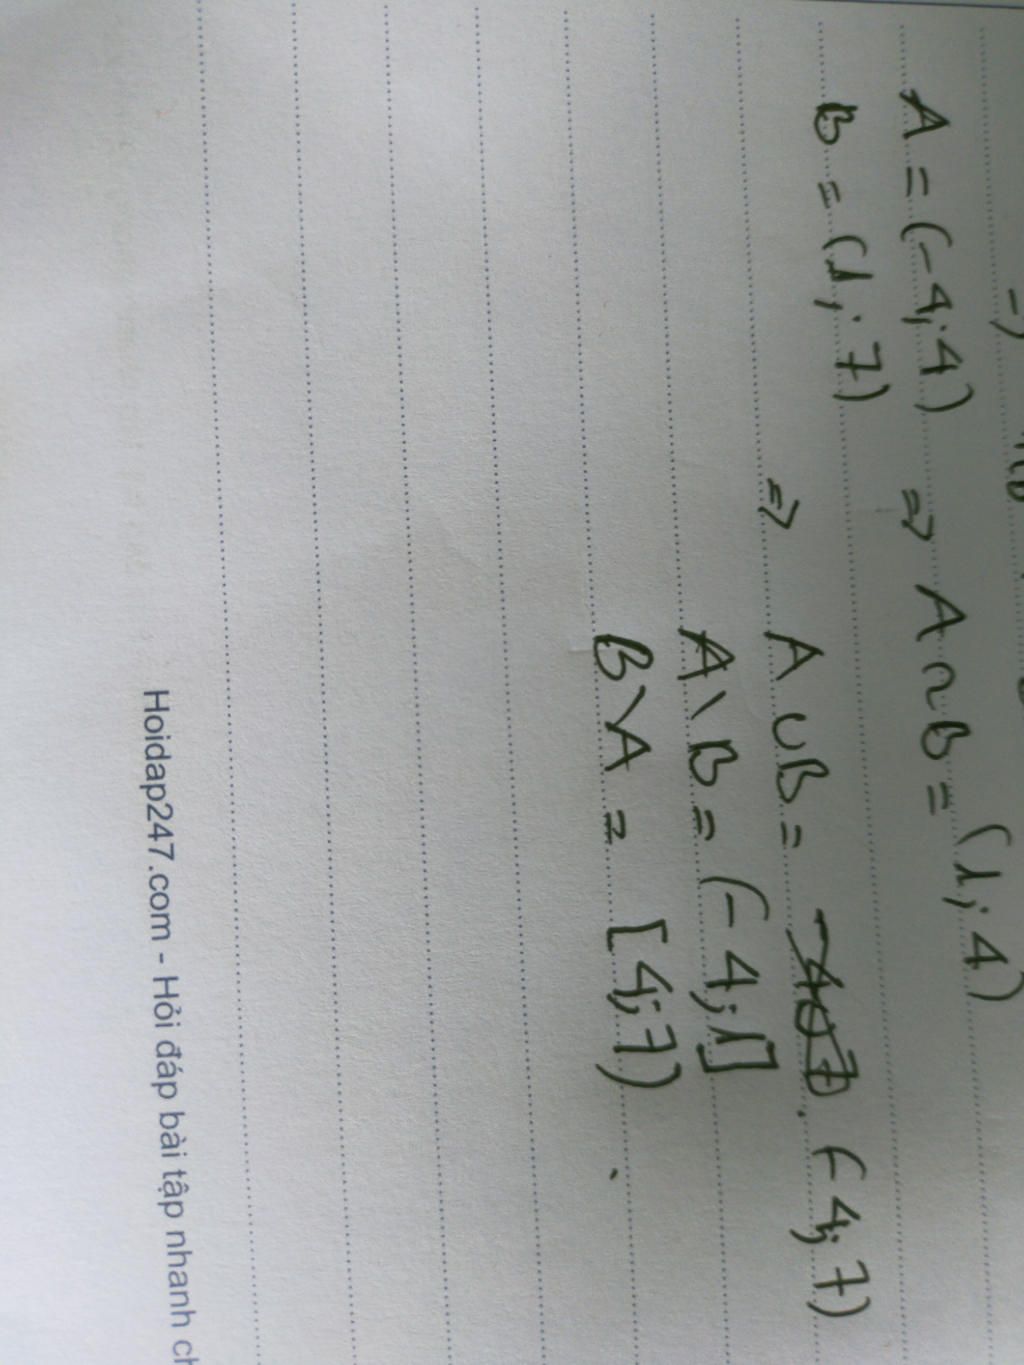 A = (-4; 4) => A ∩ B = (1; 4)
B = (1; 7)
=> A ∪ B = (-4; 7)
A \ B = (-4; 1]
B \ A = [4; 7)
Hoidap247.com - Hỏi đáp bài tập nhanh